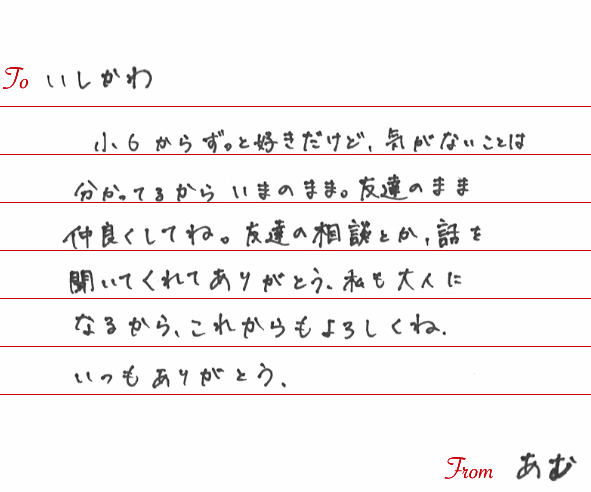 To いしかわ
小6からずっと好きだけど、気がないことは
分かってるからいまのまま。友達のまま
仲良くしてね。友達の相談とか、話を
聞いてくれてありがとう、私も大人に
なるから、これからもよろしくね.
いつもありがとう、
From あむ